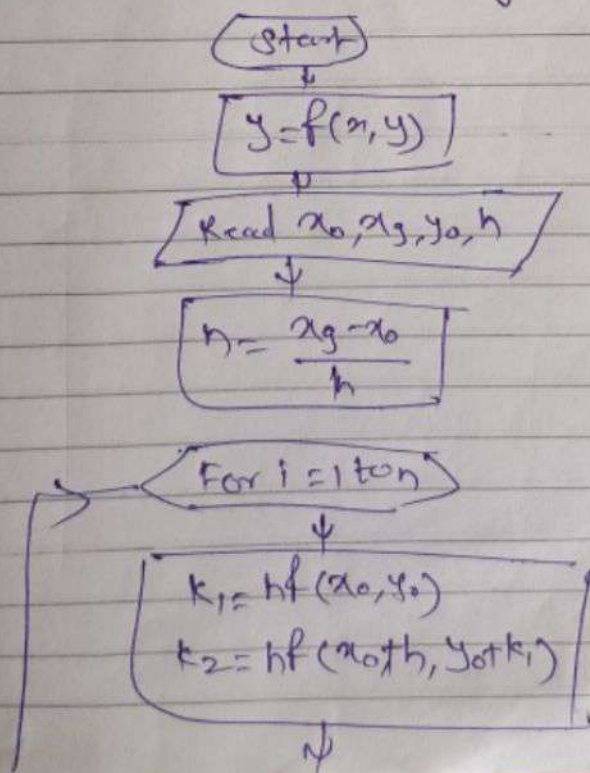 Start
y=f(x,y)
Read x₀, xg, y₀, h
n = xg-x₀
h
For i = 1 to n
k₁ = hf(x₀, y₀)
k₂ = hf(x₀+h, y₀+k₁)